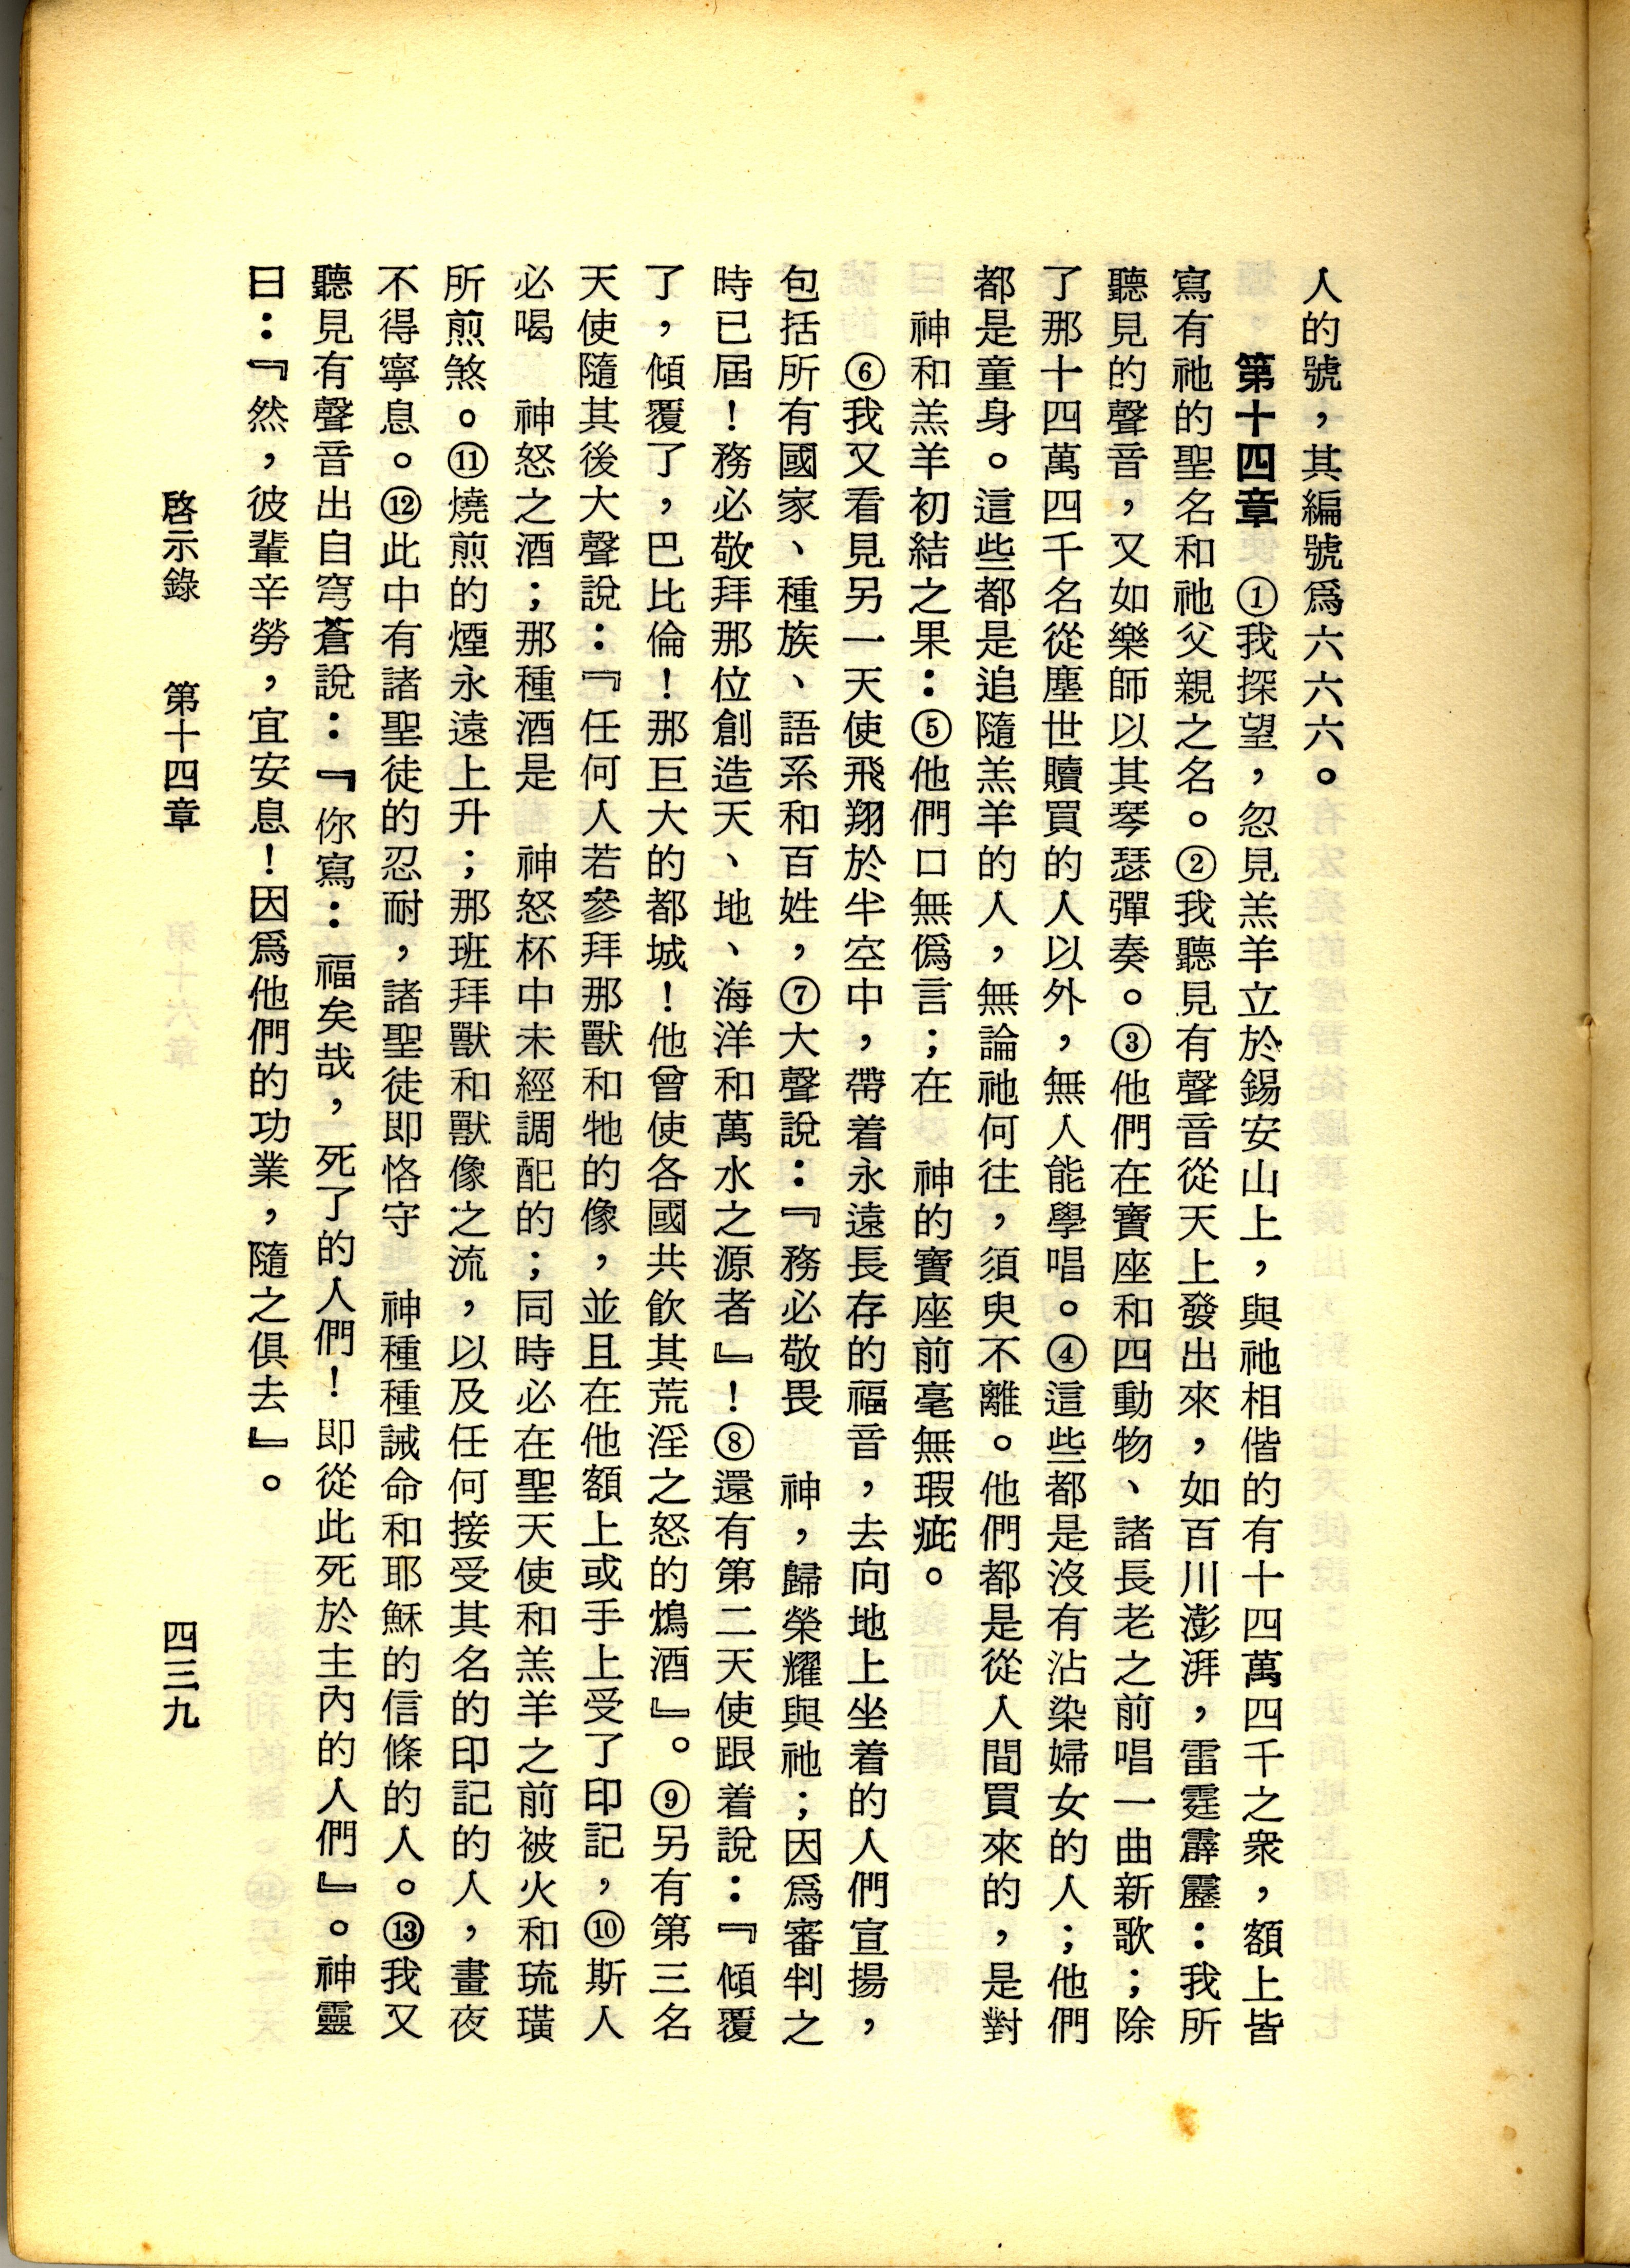 人的號，其編號爲六六六。
第十四章　①我探望，忽見羔羊立於錫安山上，與祂相偕的有十四萬四千之衆，額上皆
寫有祂的聖名和祂父親之名。②我聽見有聲音從天上發出來，如百川澎湃，雷霆霹靂：我所
聽見的聲音，又如樂師以其琴瑟彈奏。③他們在寶座和四動物、諸長老之前唱一曲新歌；除
了那十四萬四千名從塵世贖買的人以外，無人能學唱。④這些都是沒有沾染婦女的人；他們
都是童身。這些都是追隨羔羊的人，無論祂何往，須臾不離。他們都是從人間買來的，是對
　神和羔羊初結之果：⑤他們口無僞言；在　神的寶座前毫無瑕疵。
⑥我又看見另一天使飛翔於半空中，帶着永遠長存的福音，去向地上坐着的人們宣揚，
包括所有國家、種族、語系和百姓，⑦大聲說：『務必敬畏　神，歸榮耀與祂；因爲審判之
時已屆！務必敬拜那位創造天、地、海洋和萬水之源者』！⑧還有第二天使跟着說：『傾覆
了，傾覆了，巴比倫！那巨大的都城！他曾使各國共飲其荒淫之怒的鴆酒』。⑨另有第三名
天使隨其後大聲說：『任何人若參拜那獸和牠的像，並且在他額上或手上受了印記，⑩斯人
必喝　神怒之酒；那種酒是　神怒杯中未經調配的；同時必在聖天使和羔羊之前被火和琉璜
所煎煞。⑪燒煎的煙永遠上升；那班拜獸和獸像之流，以及任何接受其名的印記的人，晝夜
不得寧息。⑫此中有諸聖徒的忍耐，諸聖徒即恪守　神種種誡命和耶穌的信條的人。⑬我又
聽見有聲音出自穹蒼說：『你寫：福矣哉，死了的人們！即從此死於主內的人們』。神靈
曰：『然，彼輩辛勞，宜安息！因爲他們的功業，隨之俱去』。
啓示錄　第十四章　四三九